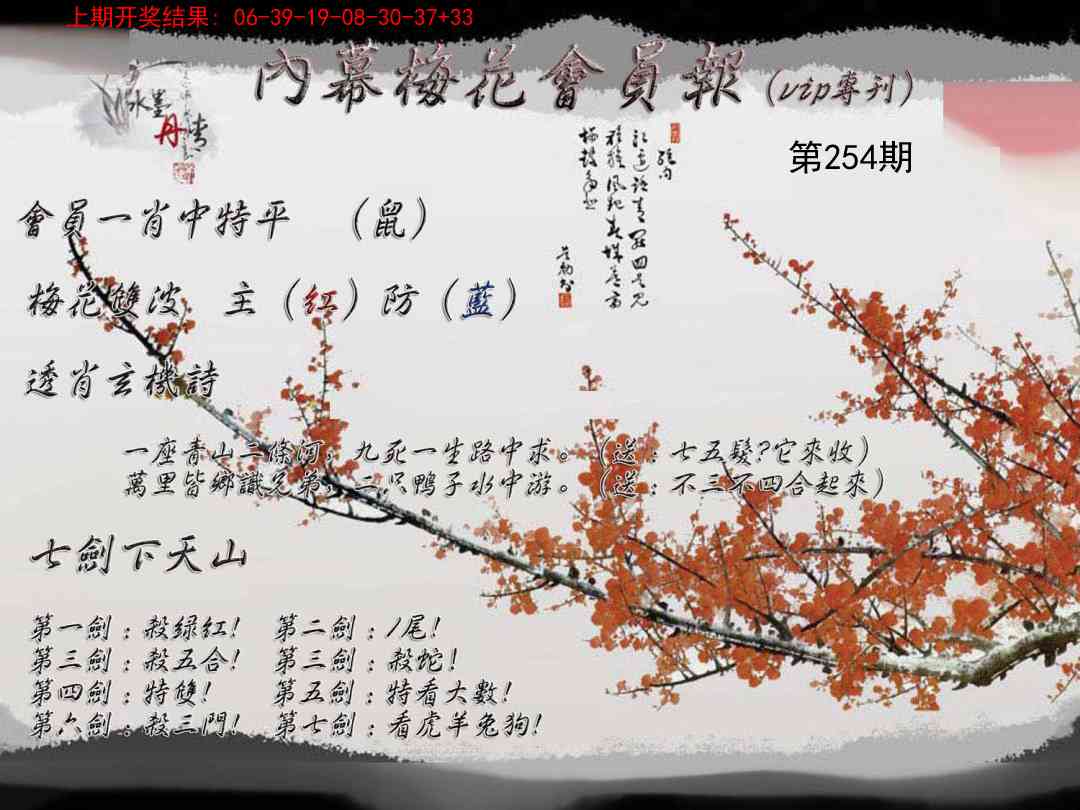 上期开奖结果: 06-39-19-08-30-37+33
內幕梅花會員報(vip專刊)
水墨
丹情
第254期
絕句
會員一肖中特平 （鼠）
梅花雙波 主（红）防（藍）
透肖玄機詩
一座青山二條河，九死一生路中求。（送：七五鬚?它來收）
萬里皆鄉識兄弟，二只鸭子水中游。（送：不三不四合起來）
七劍下天山
第一劍：殺绿红! 第二劍：1尾!
第三劍：殺五合! 第三劍：殺蛇!
第四劍：特雙! 第五劍：特看大數!
第六劍：殺三門! 第七劍：看虎羊兔狗!